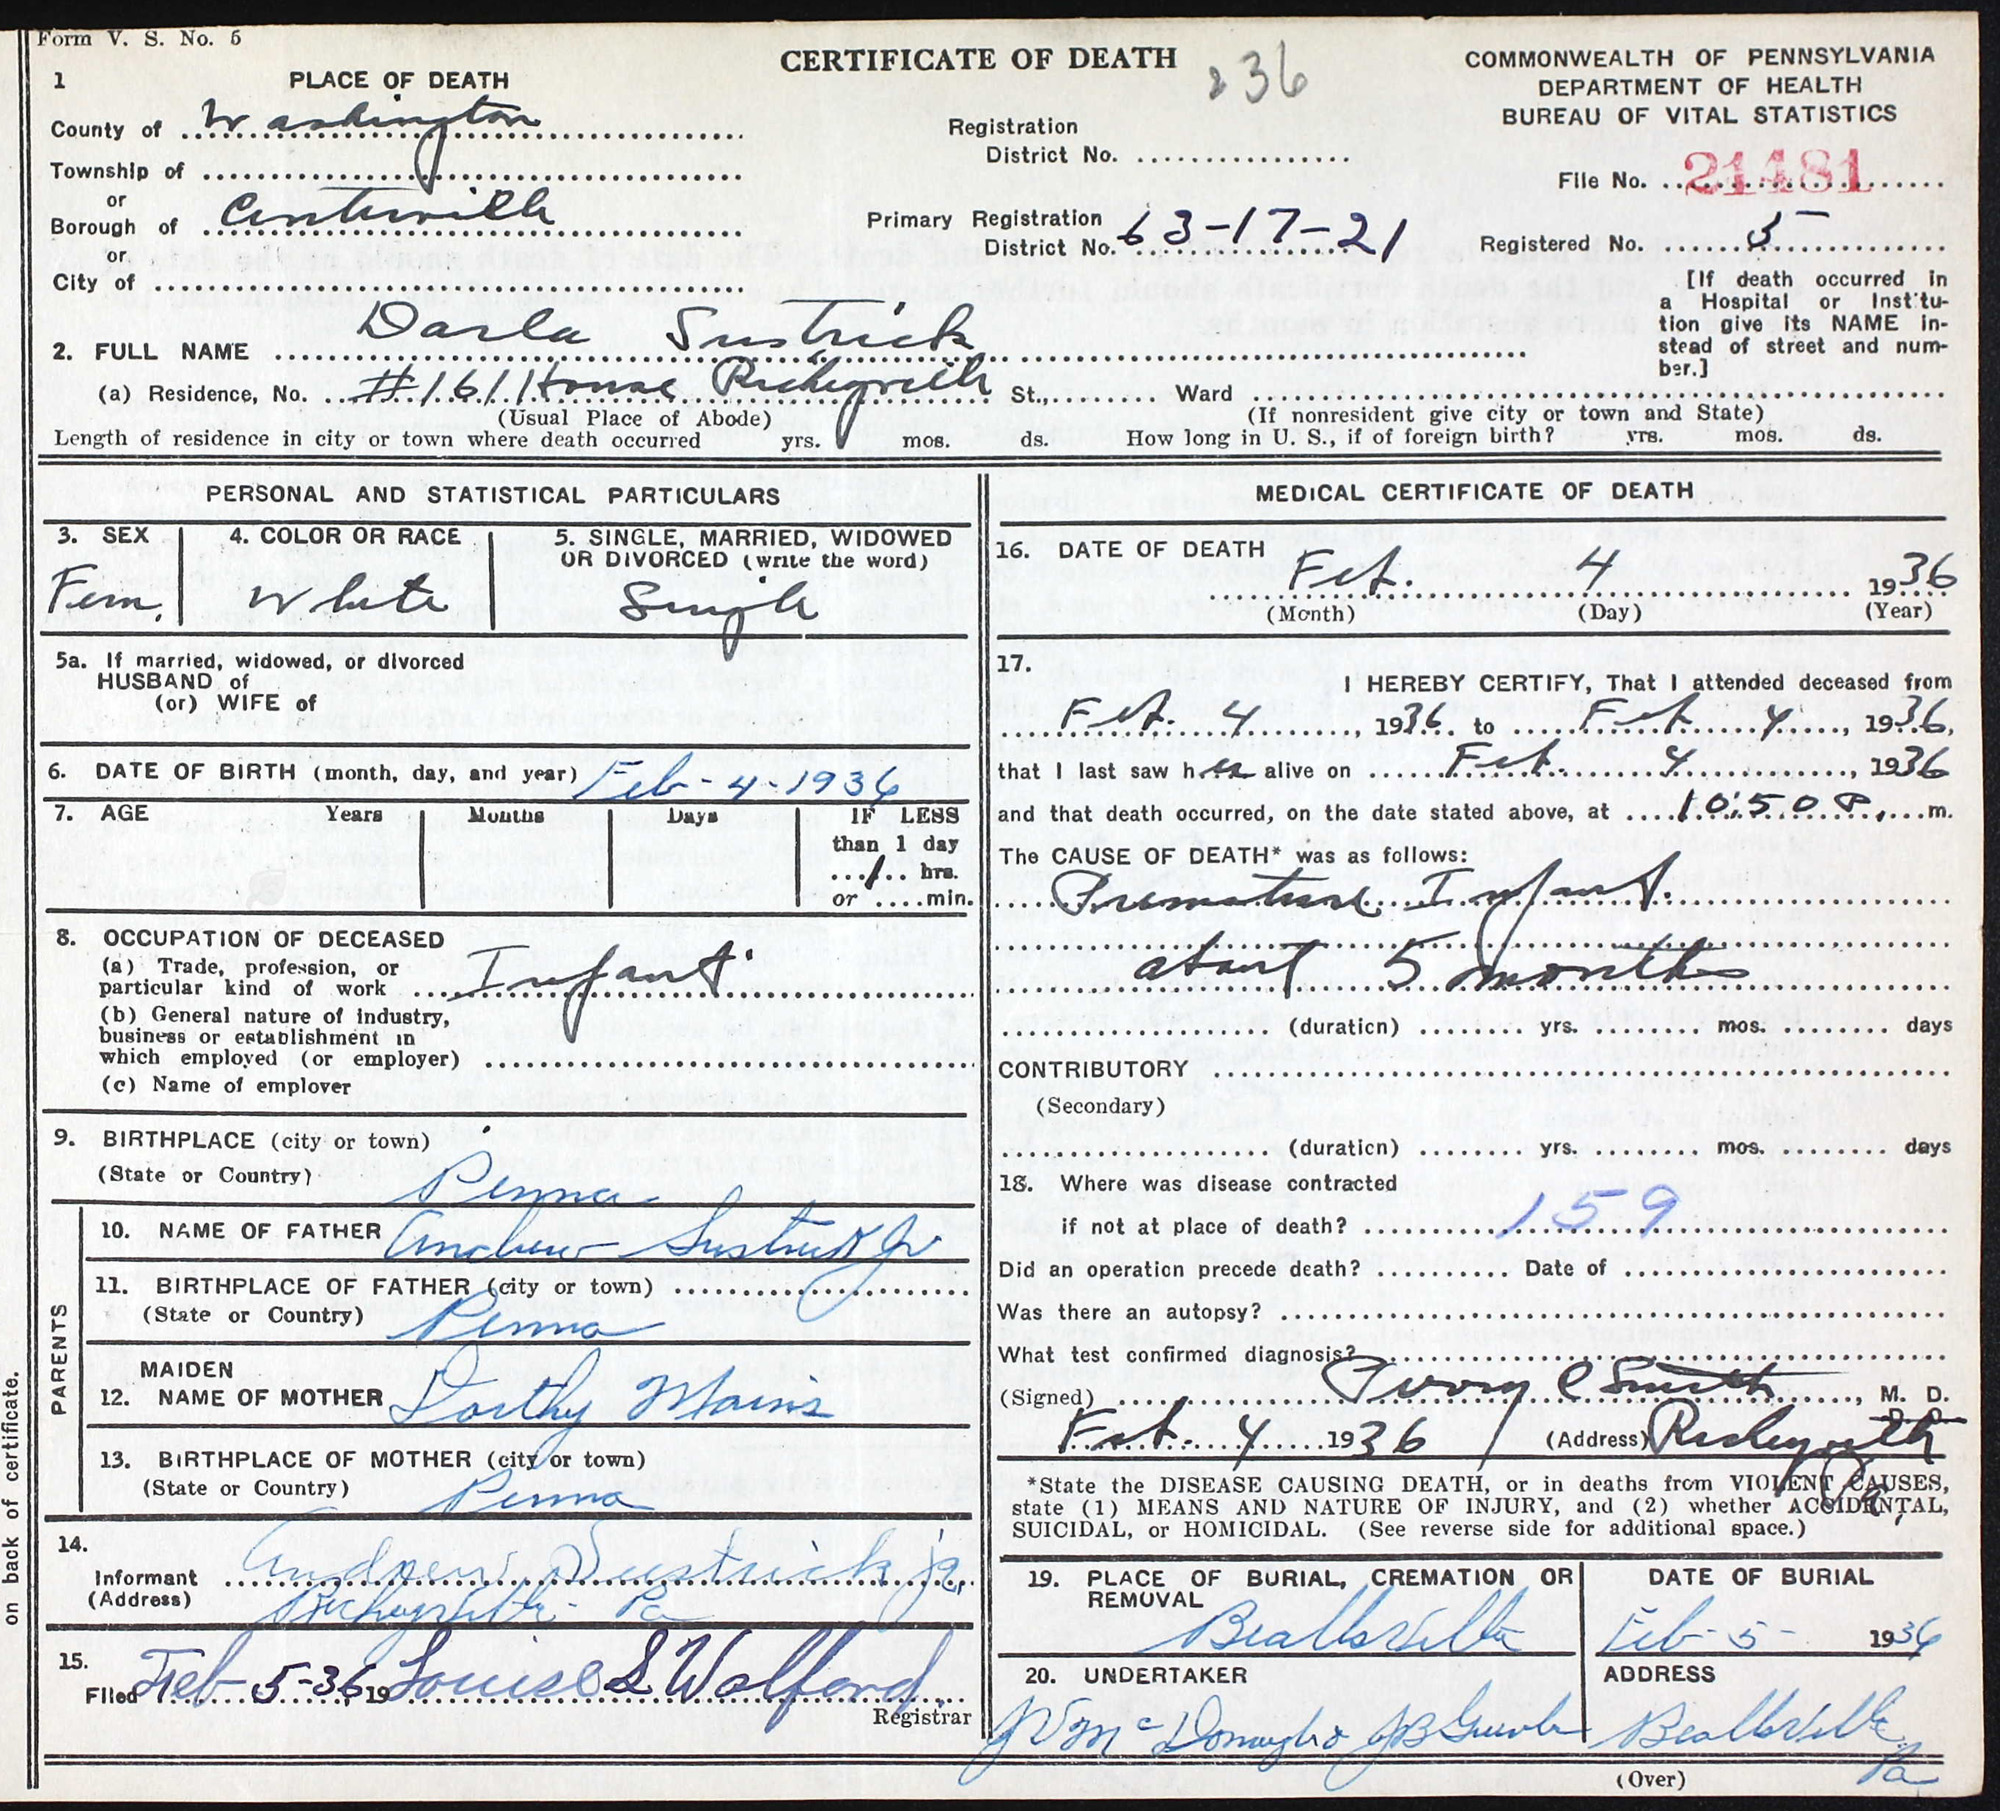 Form V. S. No. 5
CERTIFICATE OF DEATH
236
COMMONWEALTH OF PENNSYLVANIA
DEPARTMENT OF HEALTH
BUREAU OF VITAL STATISTICS
1 PLACE OF DEATH
County of Washington
Township of
or
Borough of Centerville
or
City of
Registration
District No.
Primary Registration
District No. 63-17-21
File No. 21481
Registered No. 5
[If death occurred in
a Hospital or Institu-
tion give its NAME in-
stead of street and num-
ber.]
2. FULL NAME Darla Sustrick
(a) Residence, No. #161 House Richeyville St., Ward
(Usual Place of Abode) (If nonresident give city or town and State)
Length of residence in city or town where death occurred yrs. mos. ds. How long in U. S., if of foreign birth? yrs. mos. ds.
PERSONAL AND STATISTICAL PARTICULARS
3. SEX 4. COLOR OR RACE 5. SINGLE, MARRIED, WIDOWED
OR DIVORCED (write the word)
Fem. White Single
5a. If married, widowed, or divorced
HUSBAND of
(or) WIFE of
6. DATE OF BIRTH (month, day, and year) Feb-4-1936
7. AGE Years Months Days IF LESS
than 1 day
1 hrs.
or min.
8. OCCUPATION OF DECEASED
(a) Trade, profession, or
particular kind of work Infant
(b) General nature of industry,
business or establishment in
which employed (or employer)
(c) Name of employer
9. BIRTHPLACE (city or town)
(State or Country) Penna
PARENTS
10. NAME OF FATHER Andrew Sustrick Jr
11. BIRTHPLACE OF FATHER (city or town)
(State or Country) Penna
MAIDEN
12. NAME OF MOTHER Dorthy Mains
13. BIRTHPLACE OF MOTHER (city or town)
(State or Country) Penna
14.
Informant Andrew Sustrick Jr.
(Address) Richeyville - Pa
15.
Filed Feb 5-36 19 Louise S Walford
Registrar
on back of certificate.
MEDICAL CERTIFICATE OF DEATH
16. DATE OF DEATH Feb. 4 1936
(Month) (Day) (Year)
17.
I HEREBY CERTIFY, That I attended deceased from
Feb. 4, 1936 to Feb 4, 1936,
that I last saw her alive on Feb. 4, 1936
and that death occurred, on the date stated above, at 10:50 P. m.
The CAUSE OF DEATH* was as follows:
Premature Infant.
about 5 months
(duration) yrs. mos. days
CONTRIBUTORY
(Secondary)
(duration) yrs. mos. days
18. Where was disease contracted
if not at place of death? 159
Did an operation precede death? Date of
Was there an autopsy?
What test confirmed diagnosis?
(Signed) C Smith, M. D.
Feb. 4 1936 (Address) Richeyville
Pa,
*State the DISEASE CAUSING DEATH, or in deaths from VIOLENT CAUSES,
state (1) MEANS AND NATURE OF INJURY, and (2) whether ACCIDENTAL,
SUICIDAL, or HOMICIDAL. (See reverse side for additional space.)
19. PLACE OF BURIAL, CREMATION OR
REMOVAL
Beallsville
DATE OF BURIAL
Feb-5- 1936
20. UNDERTAKER
McDonough
ADDRESS
Beallsville
Pa
(Over)